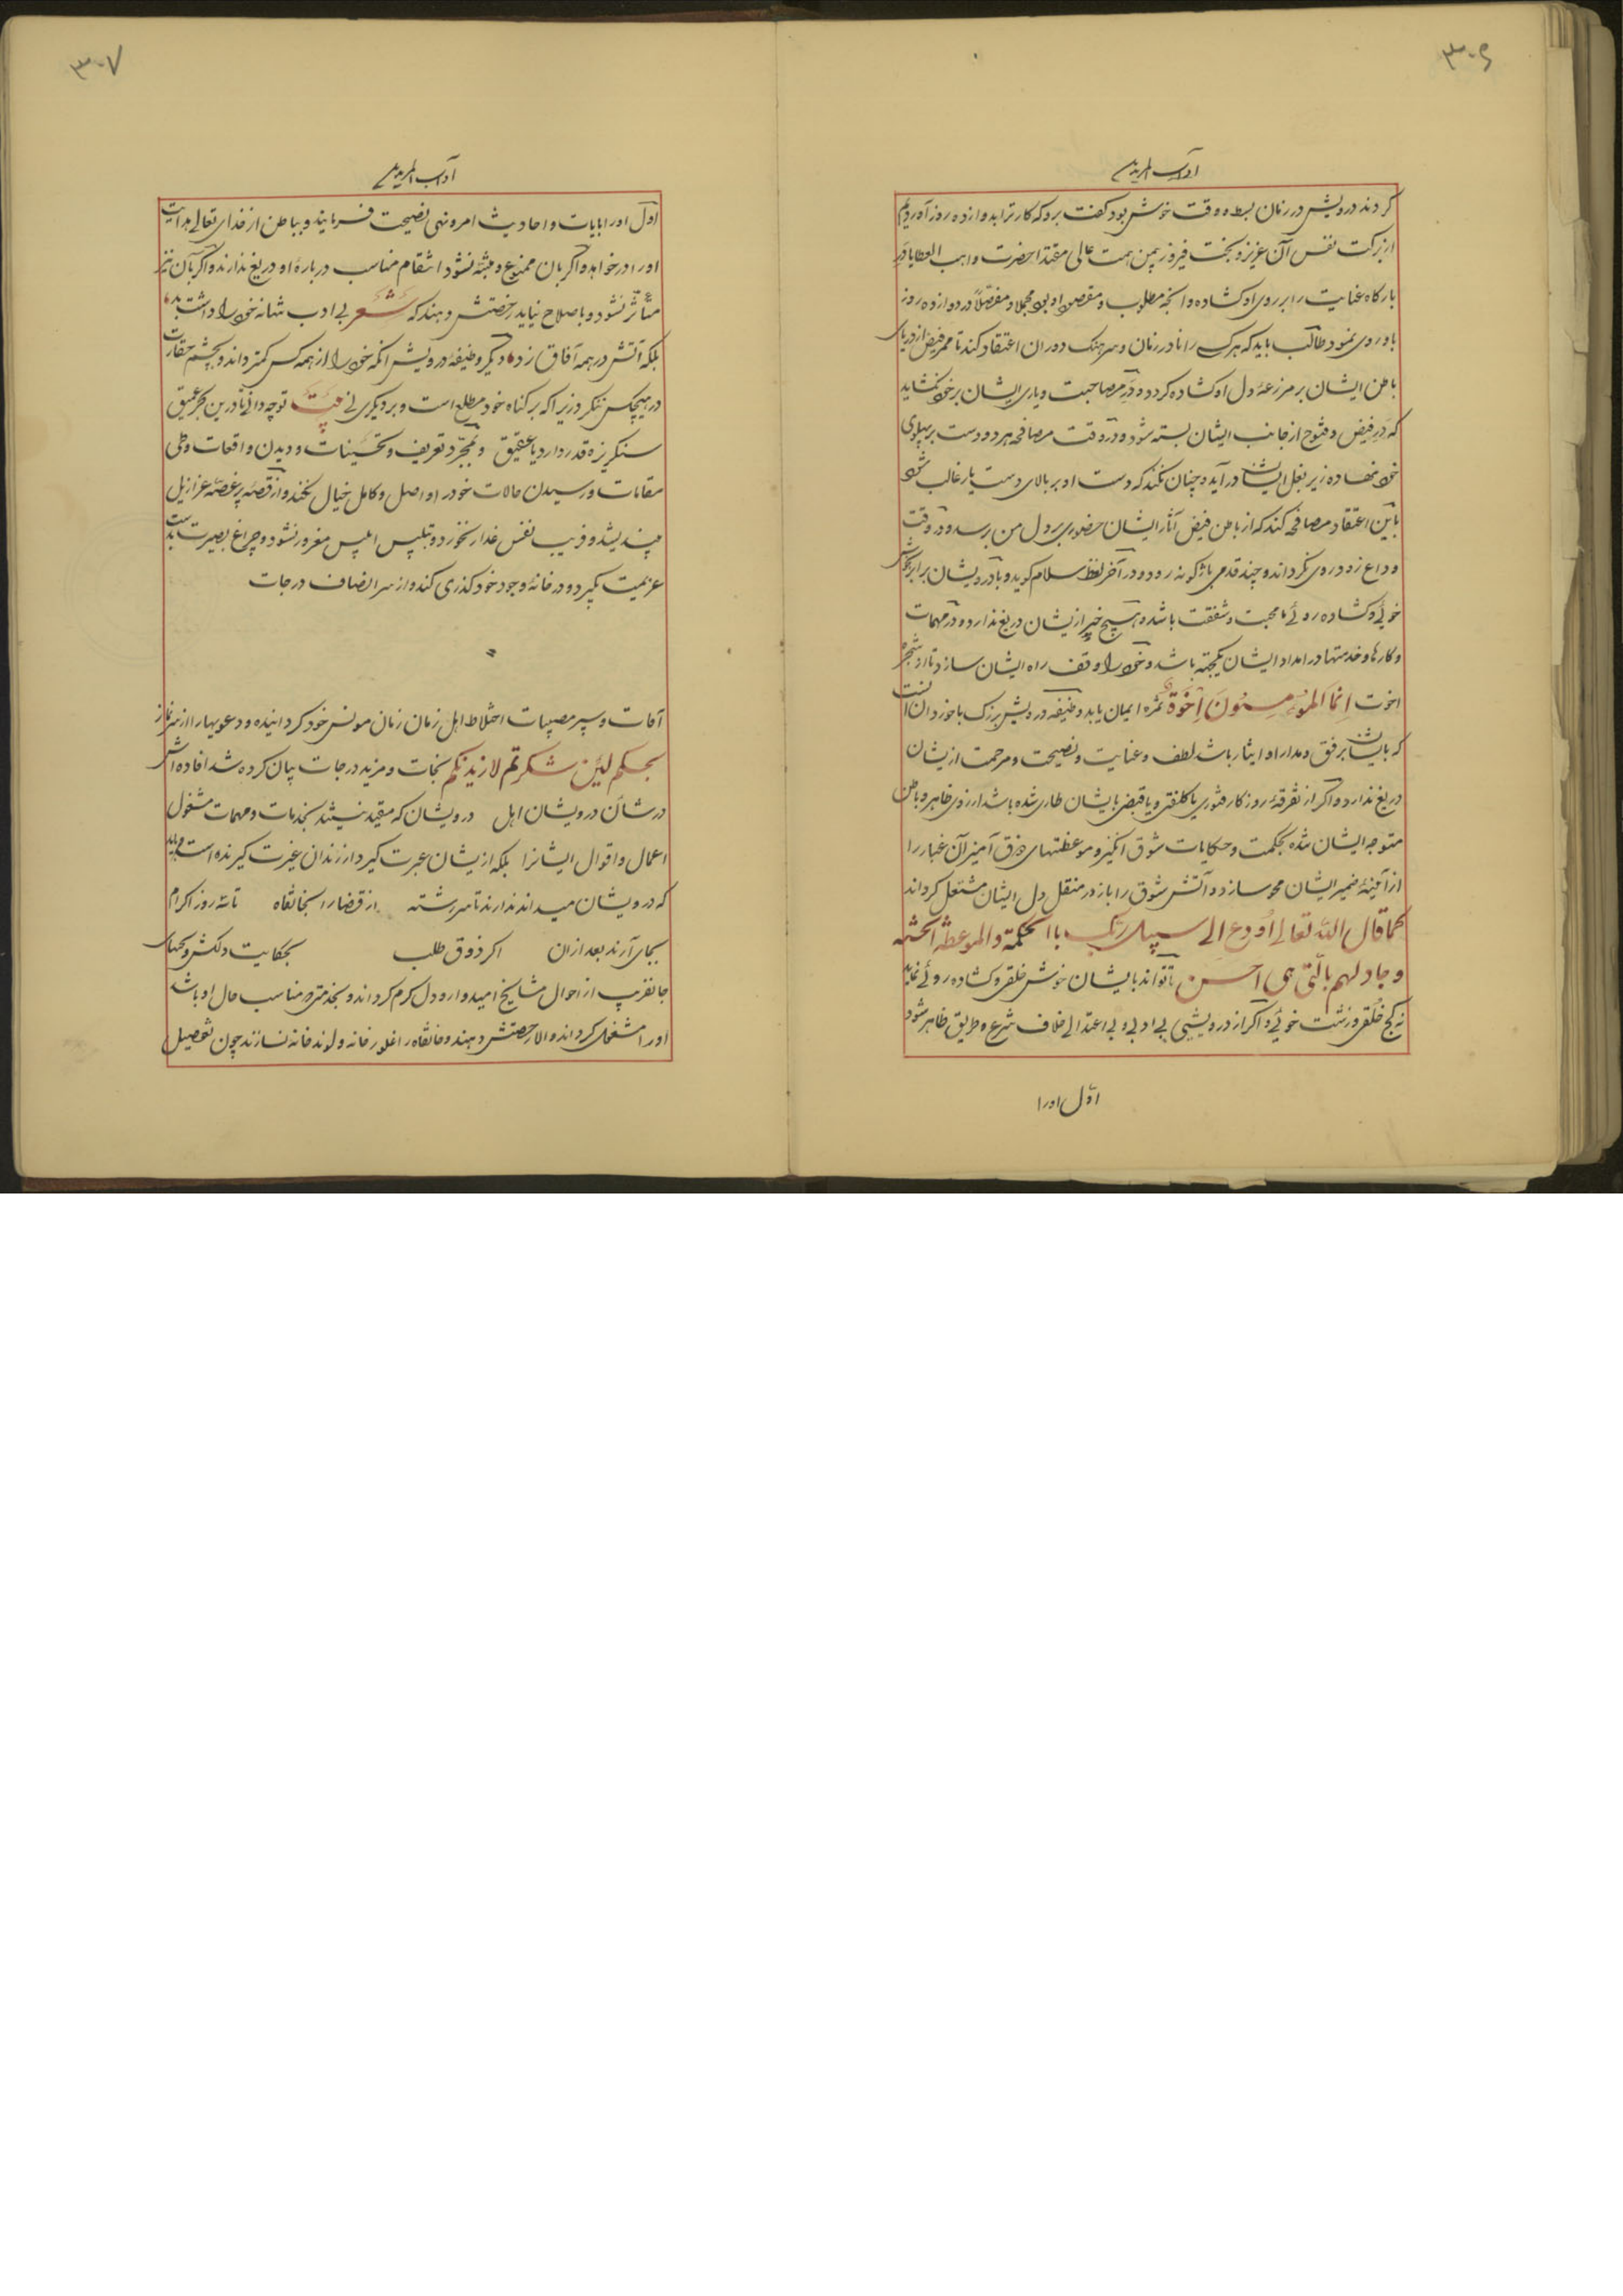 ۳۰۶
آداب المریدین
کردند درویش در زمان بسط و وقت خوش بود گفت برو که کار ترا بدوازده روز آوردیم
از برکت نفس آن عزیز و بخت فیروز بیمن همت عالی مقتدا حضرت واهب العطایا در
بارگاه عنایت را بر روی او گشاده و آنچه مطلوب و مقصود او بود مجملا و مفصلاً در دوازده روز
باو روی نمود طالب باید که هر کسے را نادر زمان و سرهنگ دوران اعتقاد کند تا ممر فیض از دریای
باطن ایشان بر مزرعهٔ دل او گشاده گردد و در مصاحبت و یاری ایشان بر خود نگشاید
که در فیض و فتوح از جانب ایشان بسته شود و در وقت مصافحه هر دو دست بر پهلوی
خود نهاده زیر بغل ایشان در آید و چنان نکند که دست او بر بالای دست یار غالب شود
باین اعتقاد مصافحه کند که از باطن فیض آثار ایشان حضوری بر دل من برسد و در وقت
وداع زود روی نگرداند و چند قدمی باژگونه رود و در آخر لفظ سلام گوید و با درویشان برابر بخوش
خوئے و گشاده روئے با محبت و شفقت باشد و هیچ خیر ازیشان دریغ ندارد و در مهمات
و کارها و خدمتها در امداد ایشان یکجهته باشد و خود را وقف راه ایشان سازد تا از شجرهٔ
اخوت اِنَّمَا المُؤمِنُونَ اِخْوَةٌ ثمره ایمان یابد و وظیفه درویش بزرگ با خوردان آنست
که با ایشان برفق و مدارا و ایثار باشد لطف و عنایت و نصیحت و مرحمت ازیشان
دریغ ندارد و اگر از تفرقهٔ روزگار فتوری یا کلفتی و یا قبضی بایشان طاری شده باشد از روی ظاهر و باطن
متوجه ایشان شده بحکمت و حکایات شوق انگیز و موعظتهای ذوق آمیز آن غبار را
از آئینهٔ ضمیر ایشان محو سازد و آتش شوق را باز در منقل دل ایشان مشتعل گرداند
کما قال الله تعالى اُودع الى سبیل ربک باالحکمة والموعظة الحسنة
و جادلهم بالّتی هی احسن تا تواند بایشان خوش خلقی و گشاده روئے نماید
نه کج خلقی و زشت خوئے و اگر از درویشی بی ادبی و بی اعتدالی خلاف شرع و طریق ظاهر شود
اوّل اورا
۳۰۷
آداب المریدین
اوّل اورا بآیات و احادیث امر و نهی نصیحت فرمایند و بباطن از خدای تعالی هدایت
اورا درخواهد و اگر بان ممنوع و متنبه نشود انتقام مناسب دربارهٔ او دریغ ندارند و اگر بآن نیز
متأثر نشود و باصلاح نیاید رخصتش دهند که شعر بی ادب تنها نه خود را داشت بد
بلکه آتش در همه آفاق زد دیگر وظیفه درویش آنکه خود را از همه کس کمتر داند و بچشم حقارت
در هیچکس ننگرد زیرا که بر گناه خود مطلع است و بر دیگری نے بیت تو چه دانی تا درین بحر عمیق
سنگریزه قدر دارد یا عقیق و بمجرد تعریف و تحسینات و دیدن واقعات و طی
مقامات و رسیدن حالات خود را واصل و کامل خیال نکند و از قصهٔ پر غصهٔ عزازیل
بیندیشد و فریب نفس غدار نخورد و بتلبیس ابلیس مغرور نشود و چراغ بصیرت بدست
عزیمت بگیرد و در خانهٔ وجود خود گذری کند و از سر انصاف درجات
آفات و سیر مصیبات اختلاط اهل زمان زمان مونس خود گردانیده و دعویها را از سر نماز
بحکم لئن شکرتم لازیدنکم نجات و مزید درجات بیان کرده شد افاده اش
در شان درویشان اهل درویشان که مقید نیستند بخدمات و مهمات مشغول
اعمال و اقوال ایشانرا بلکه ازیشان عبرت گیرد از رندان عبرت گیرنده است و باید
که درویشان میداندندارند تا سررشته از قضا را بخانقاه تا سه روز اکرام
بجای آرند بعد ازان اگر ذوق طلب بحکایت دلکش و سخنهای
جانفریب از احوال مشایخ امیدوار و دل گرم گرداند و بخدمتی که مناسب حال او باشد
اورا مشغول گرداند و الا رخصتش دهند و خانقاه را غلورخانه و لوندخانه نسازند چون تحصیل